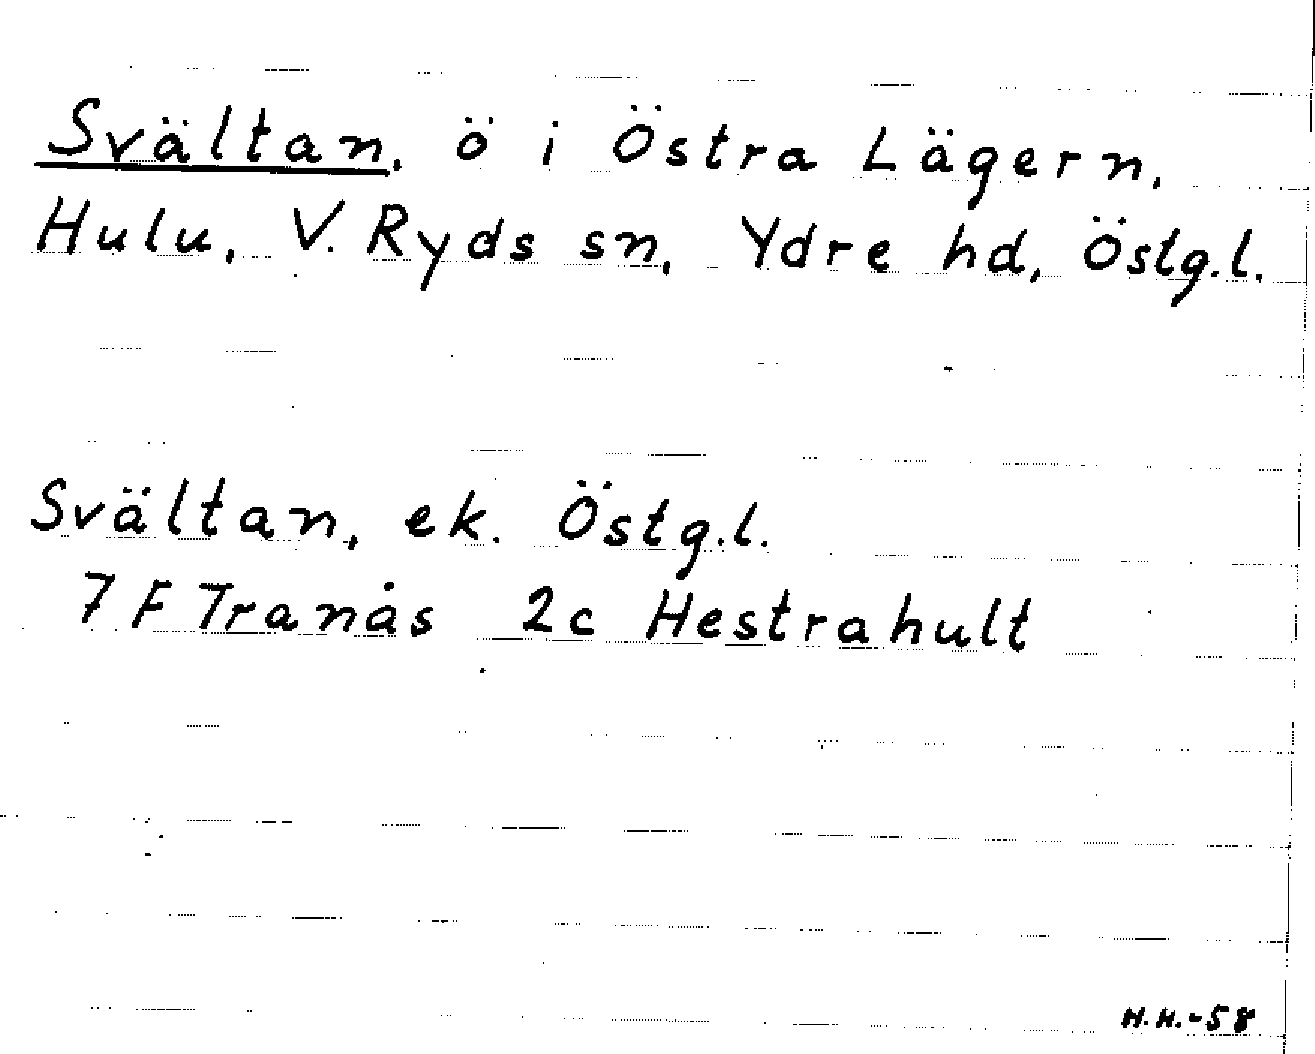 Svältan, ö i Östra Lägern,
Hulu, V. Ryds sn, Ydre hd, Östg.l.
Svältan, ek. Östg.l.
7 F Tranås 2c Hestrahult
H.H.-58